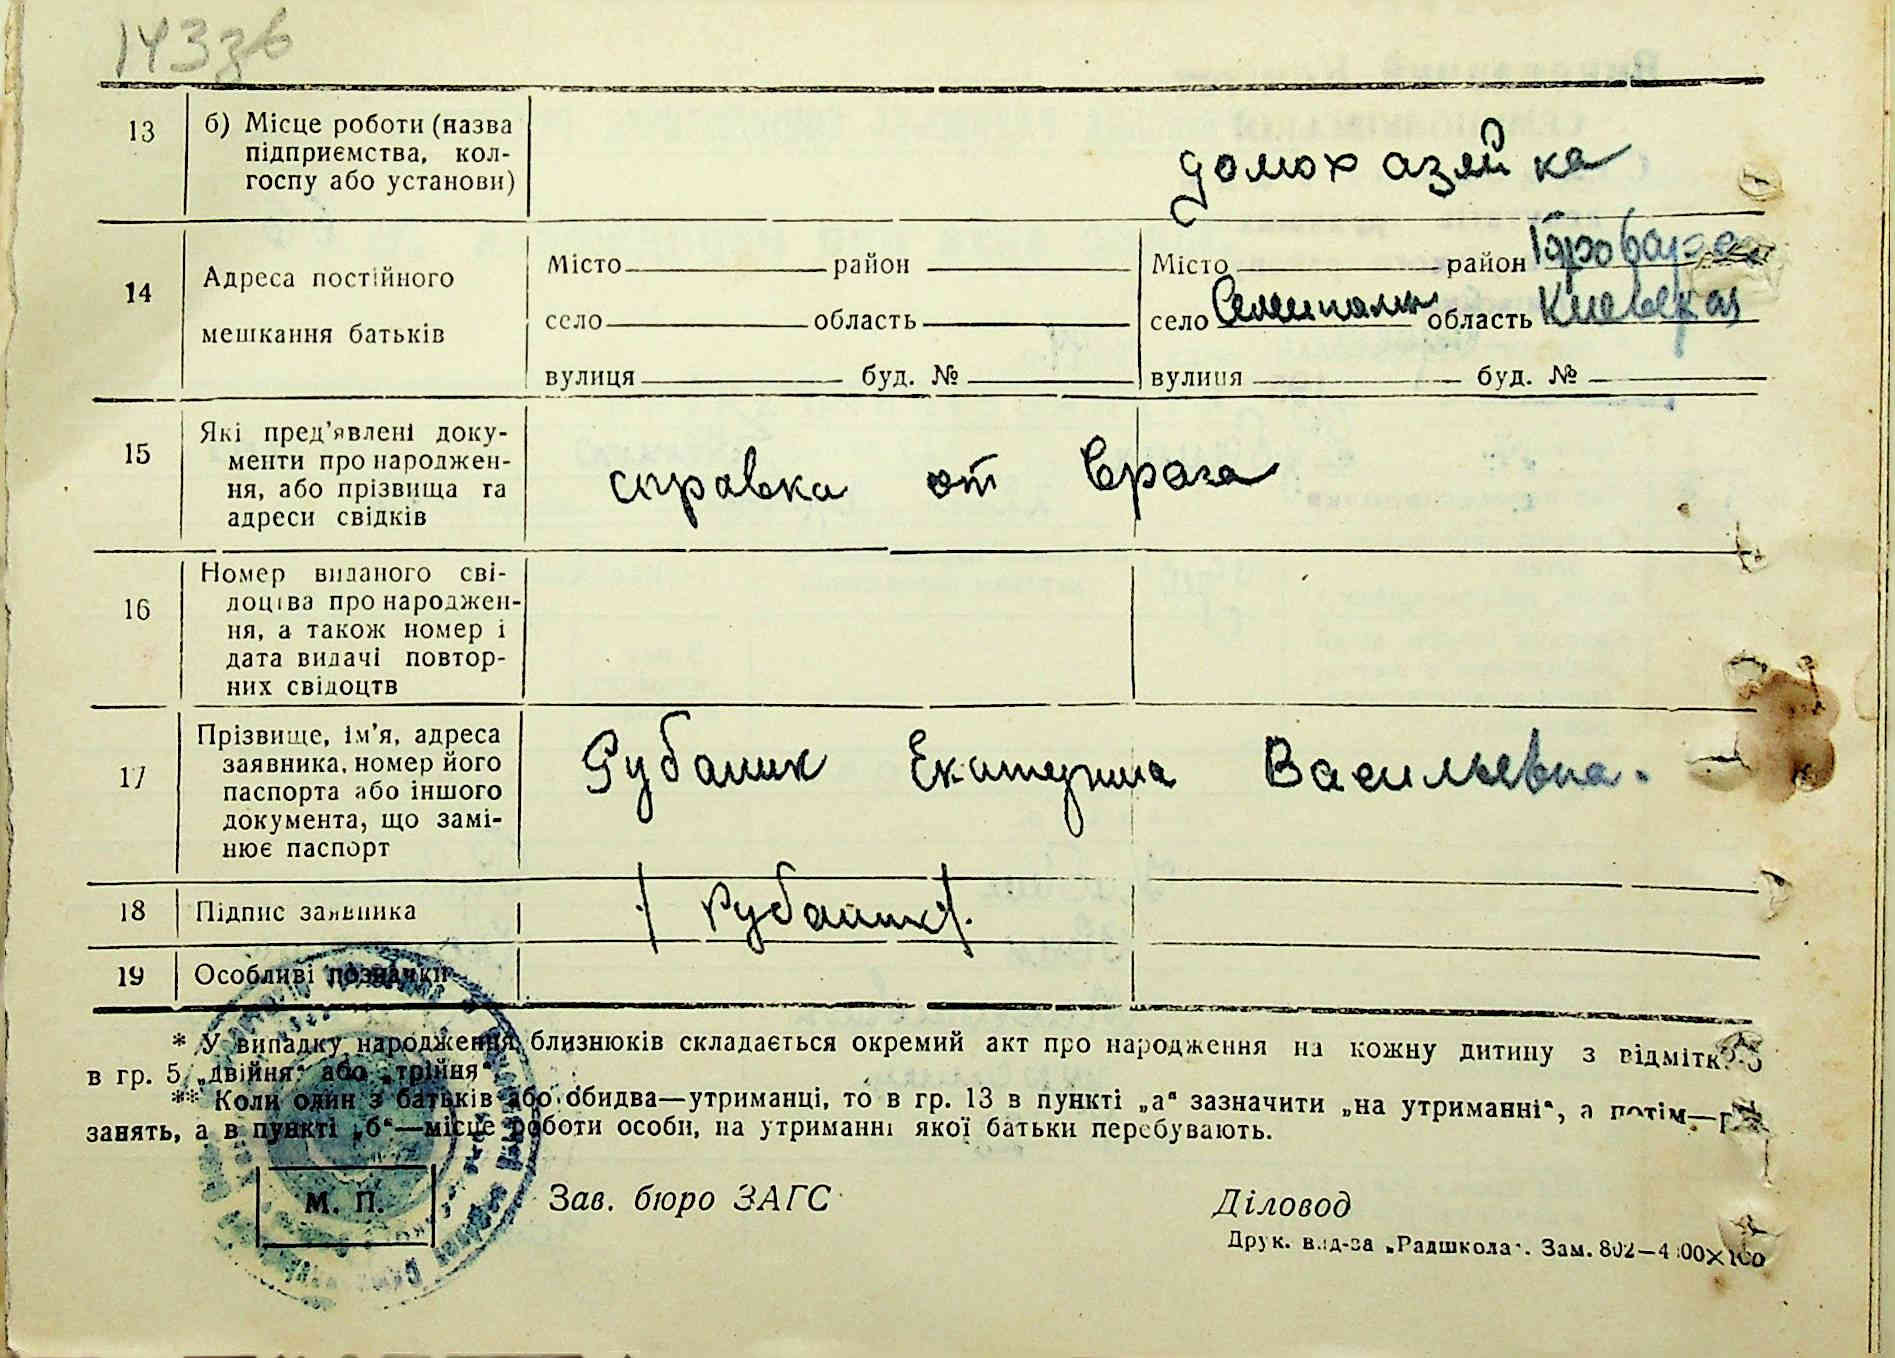 143зв
13
б) Місце роботи (назва
підприємства, кол-
госпу або установи)
домохазяйка
14
Адреса постійного
мешкання батьків
Місто район
село область
вулиця буд. №
Місто район
село Семиполки область Киевская
вулиця буд. №
15
Які пред'явлені доку-
менти про народжен-
ня, або прізвища та
адреси свідків
справка от врача
16
Номер виданого сві-
доцтва про народжен-
ня, а також номер і
дата видачі повтор-
них свідоцтв
17
Прізвище, ім'я, адреса
заявника, номер його
паспорта або іншого
документа, що замі-
нює паспорт
Рубаник Екатерина Васильевна.
18
Підпис заявника
/ Рубаник /.
19
Особливі позначки
* У випадку народження близнюків складається окремий акт про народження на кожну дитину з відміткою
в гр. 5 „двійня“ або „трійня“
** Коли один з батьків або обидва—утриманці, то в гр. 13 в пункті „а“ зазначити „на утриманні“, а потім—
занять, а в пункті „б“—місце роботи особи, на утриманні якої батьки перебувають.
М. П.
Зав. бюро ЗАГС
Діловод
Друк. вид-ва „Радшкола“. Зам. 802—